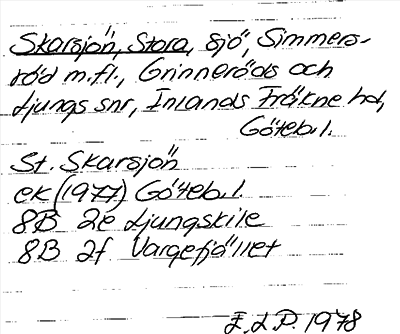 Skarsjön, Stora, sjö, Simmers-
röd m.fl., Grinneröds och
Ljungs snr, Inlands Fräkne hd,
Göteb.l.
St. Skarsjön
ek (1977) Göteb.l.
8B 2e Ljungskile
8B 2f Vargefjället
E.L.P. 1978